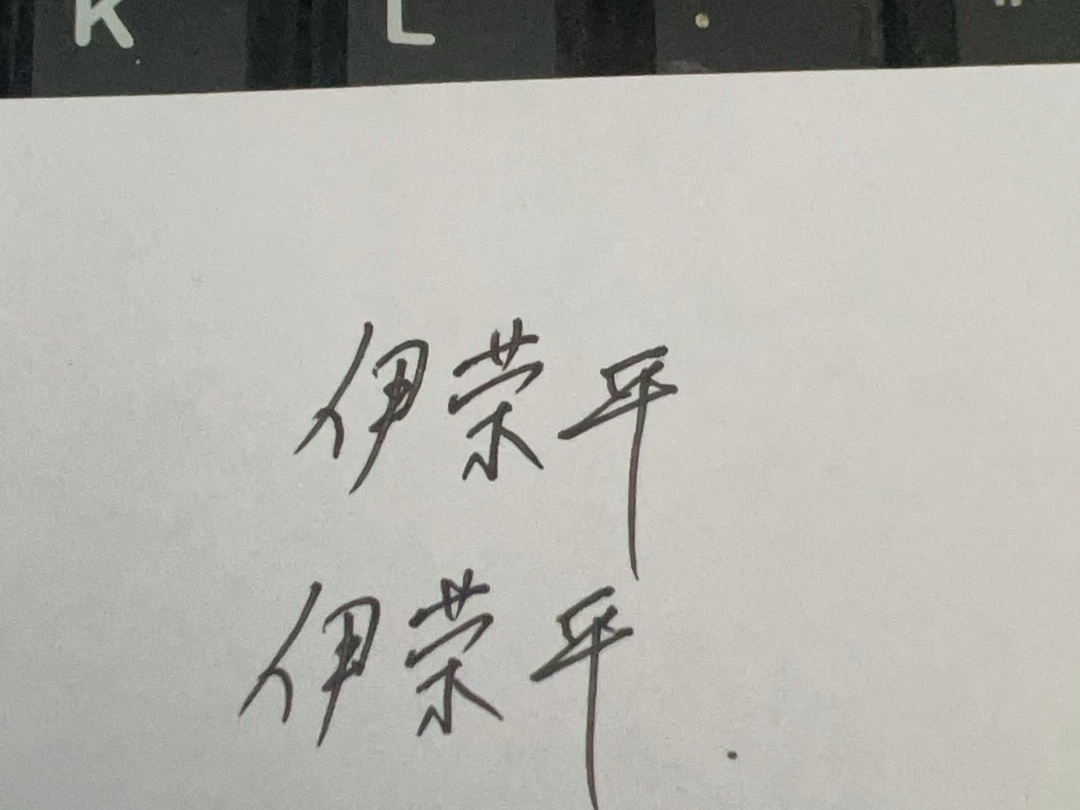 K L
伊荣平
伊荣平